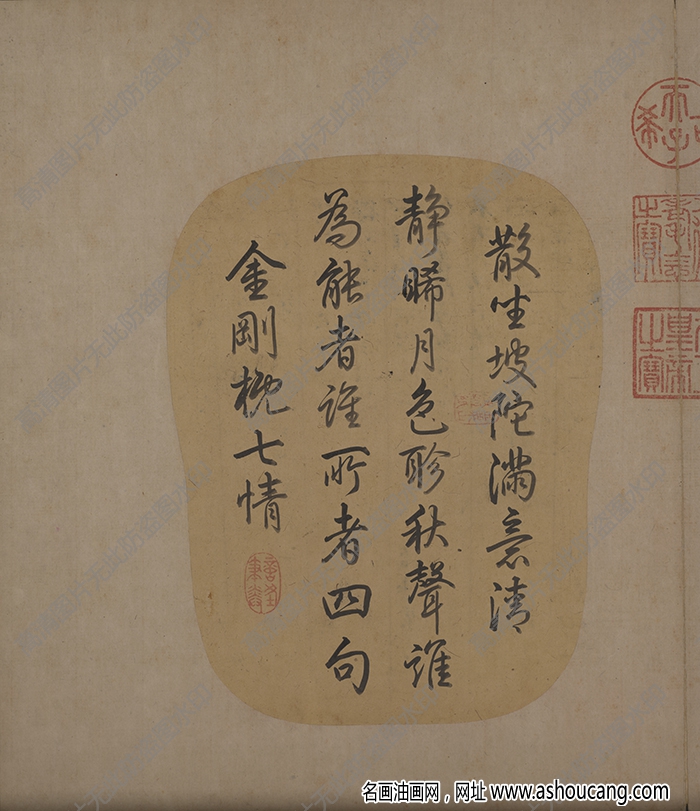 散坐坡陀滿意清
靜睎月色聆秋聲誰
為能者誰所者四句
金剛概七情
名画油画网，网址 www.ashoucang.com